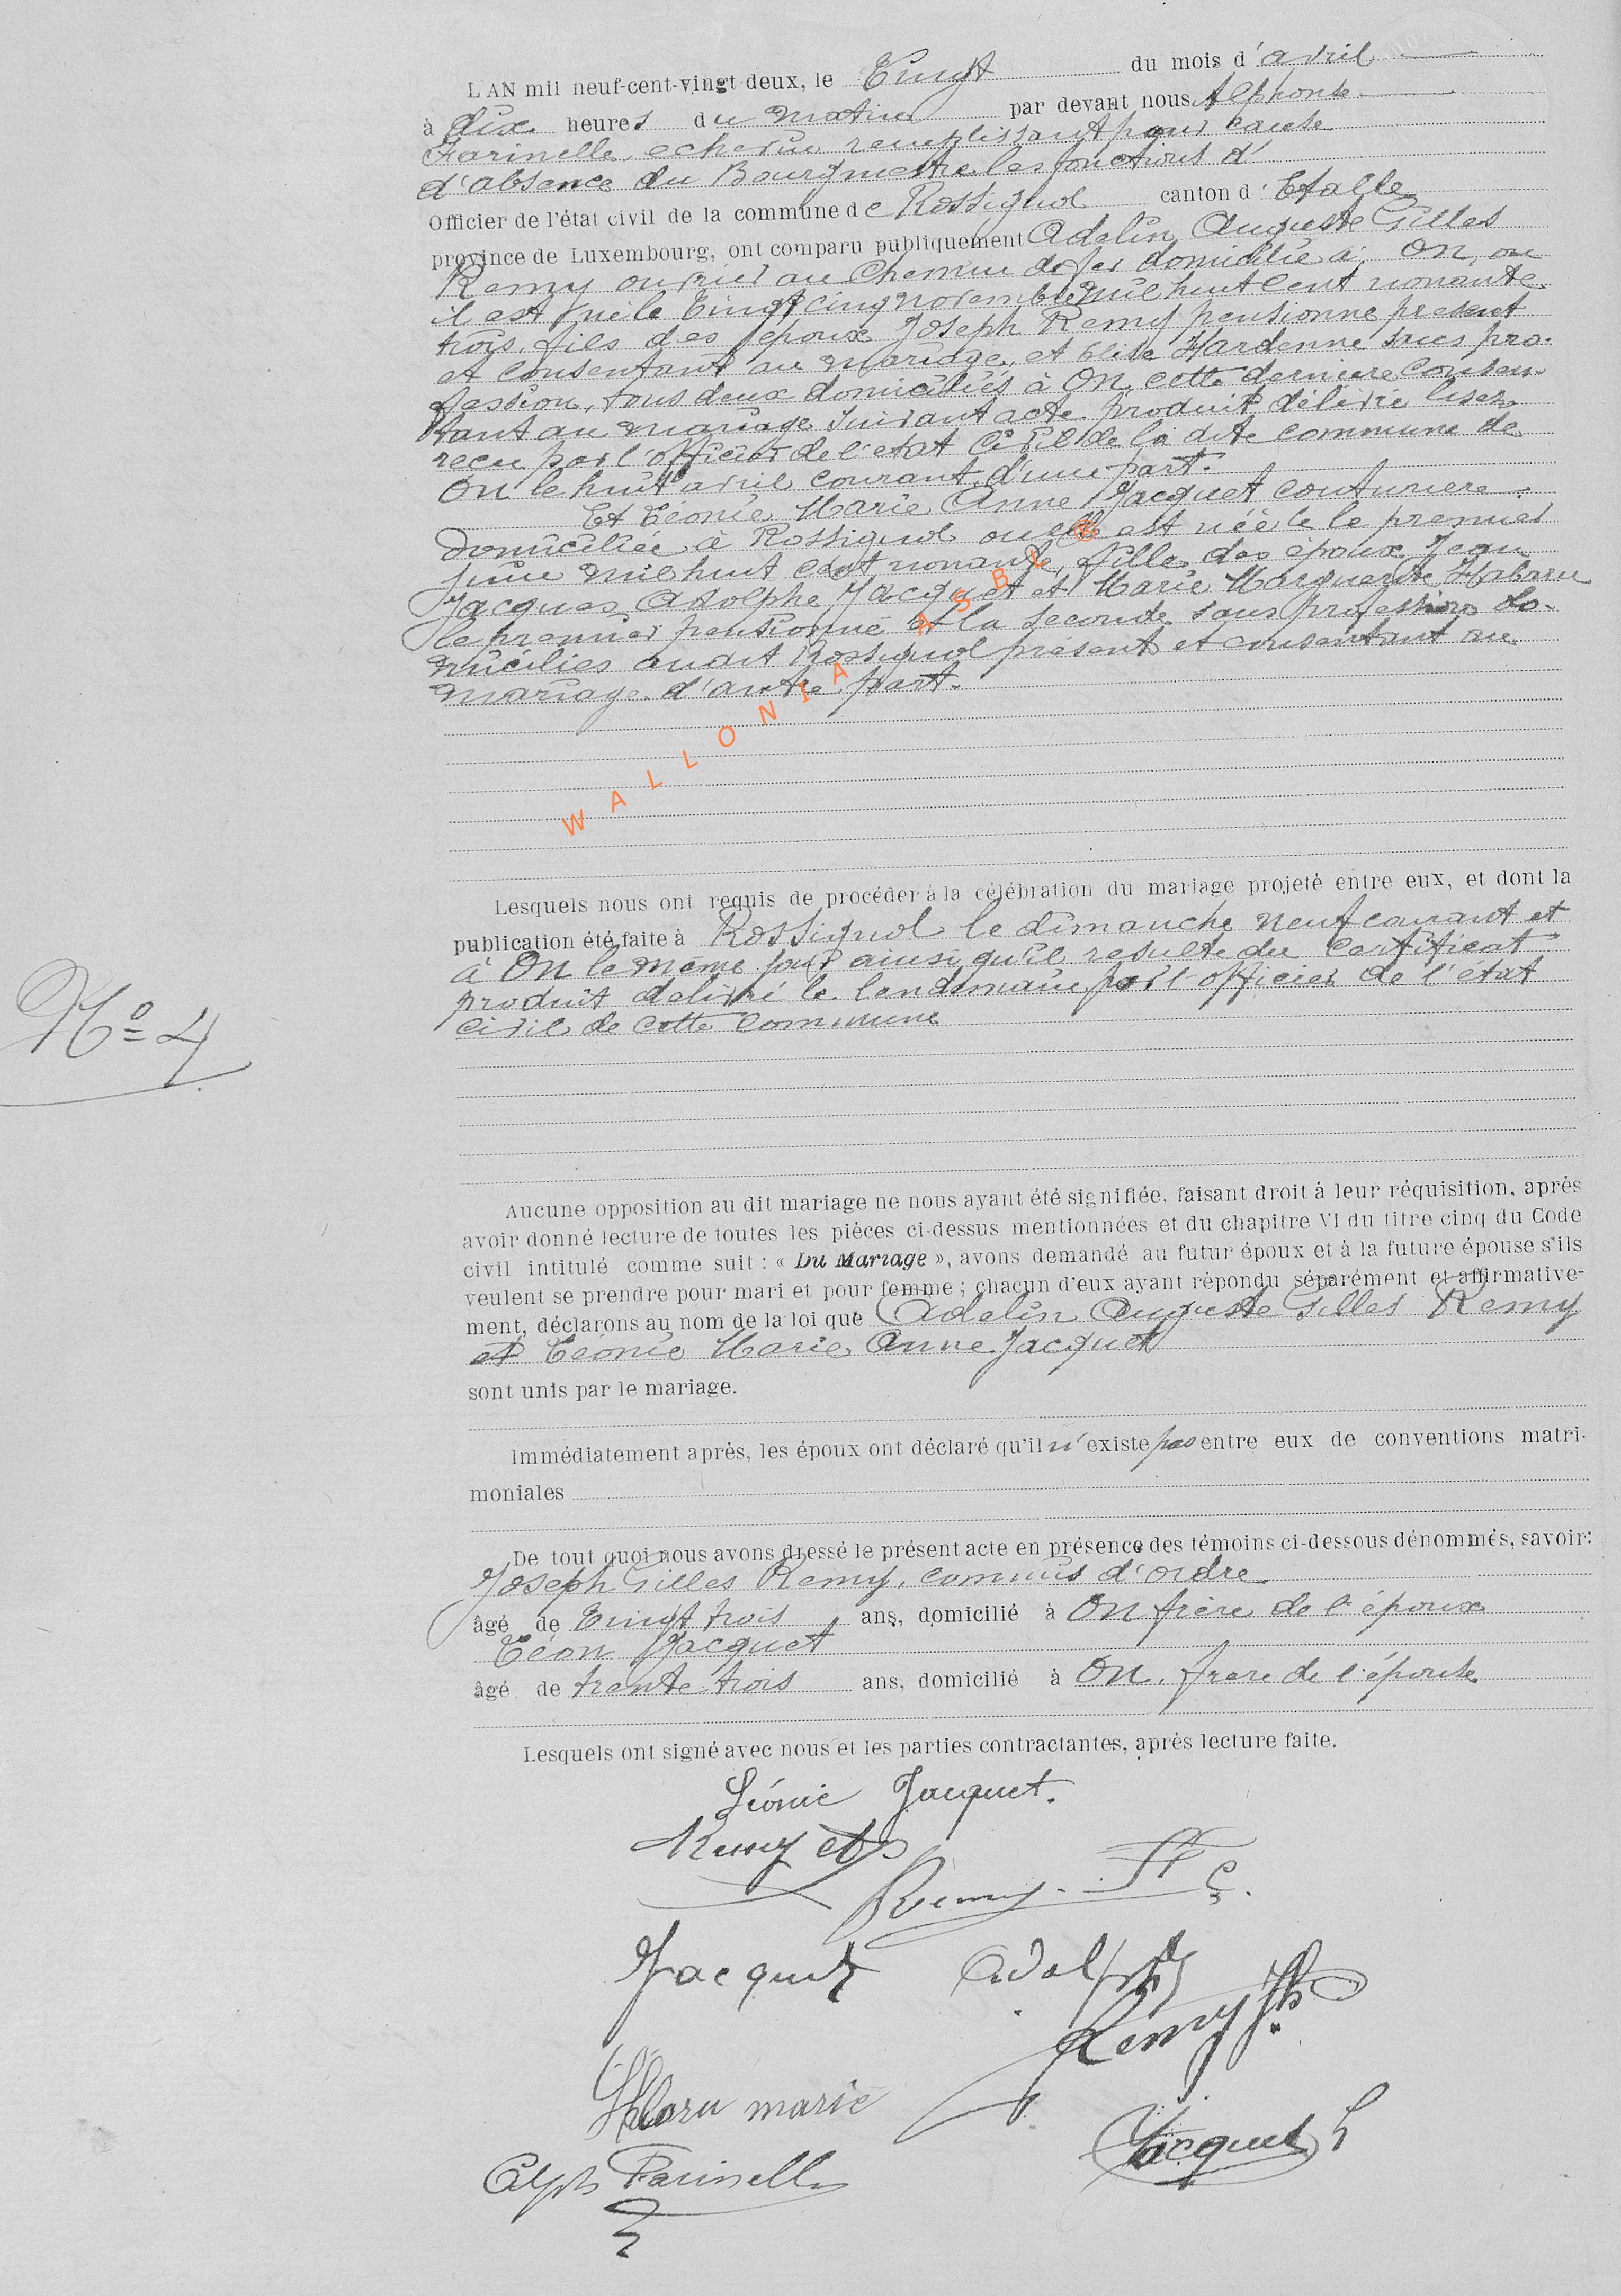 L'AN mil neuf-cent-vingt-deux, le Vingt du mois d'avril
à dix heures du matin par devant nous Alphonse
Farinelle, echevin remplissant pour cause
d'absence du Bourgmestre les fonctions d'
Officier de l'état civil de la commune de Rossignol canton d'Etalle
province de Luxembourg, ont comparu publiquement Adelin Auguste Gilles
Remy ouvrier au Chemin de fer domicilié à On, ou
il est né le Vingt cinq novembre mil huit cent nonante
trois, fils des époux Joseph Remy pensionné présent
et consentant au mariage, et Elise Hardenne sans pro-
fession, tous deux domiciliés à On, cette dernière consen-
tant au mariage suivant acte produit délivré lisez
recu par l'officier de l'etat Civil de la dite commune de
On le huit avril courant, d'une part.
Et Léonie Marie Anne Jacquet couturière
domiciliée à Rossignol ou elle est née le le premier
juin mil huit cent nonante, fille des époux Jean
Jacques Adolphe Jacquet et Marie Marguerite Habaru
le premier pensionné et la seconde sans profession do-
miciliés audit Rossignol présent et consentant au
mariage d'autre part.
WALLONIA ASBL ©
Lesquels nous ont requis de procéder à la célébration du mariage projeté entre eux, et dont la
publication été faite à Rossignol le dimanche neuf courant et
à On le même jour ainsi qu'il resulte du certificat
produit délivré le lendemain par l'officier de l'état
civil de cette commune
N° 4
Aucune opposition au dit mariage ne nous ayant été signifiée, faisant droit à leur réquisition, après
avoir donné lecture de toutes les pièces ci-dessus mentionnées et du chapitre VI du titre cinq du Code
civil intitulé comme suit : « Du Mariage », avons demandé au futur époux et à la future épouse s'ils
veulent se prendre pour mari et pour femme ; chacun d'eux ayant répondu séparément et affirmative-
ment, déclarons au nom de la loi que Adelin Auguste Gilles Remy
et Léonie Marie Anne Jacquet
sont unis par le mariage.
Immédiatement après, les époux ont déclaré qu'il n'existe pas entre eux de conventions matri-
moniales
De tout quoi nous avons dressé le présent acte en présence des témoins ci-dessous dénommés, savoir:
Joseph Gilles Remy, commis d'ordre
âgé de Vingt trois ans, domicilié à On frère de l'époux
Léon Jacquet
âgé de trente trois ans, domicilié à On, frere de l'épouse
Lesquels ont signé avec nous et les parties contractantes, après lecture faite.
Léonie Jacquet.
Remy
Remy
Jacquet Adolphe
Remy Jh
Habaru marie
Jacquet L
Alph Farinelle